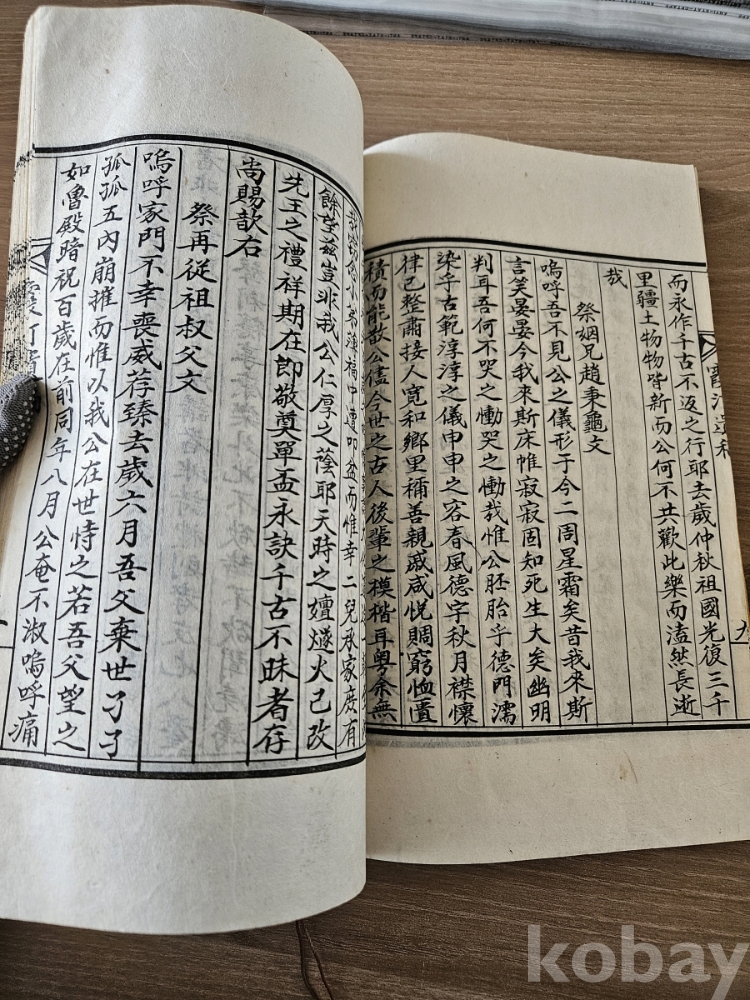 而永作千古不返之行耶去歲仲秋祖國光復三千
里疆土物物皆新而公何不共歡此樂而溘然長逝
哉
祭姻兄趙秉龜文
嗚呼吾不見公之儀形于今二周星霜矣昔我來斯
言笑晏晏今我來斯床帷寂寂固知死生大矣幽明
判耳吾何不哭之慟哭之慟哉惟公胚胎乎德門濡
染乎古範淳淳之儀申申之容春風德宇秋月襟懷
律己整肅接人寬和鄉里稱善親戚咸悅賙窮恤匱
積而能散公儘今世之古人後輩之模楷耳粤余無
餘望茲豈非我公仁厚之蔭耶天時之嬗燧火已改
先王之禮祥期在卽敬奠單盃永訣千古不昧者存
尚賜歆右
祭再從祖叔父文
嗚呼家門不幸喪威荐臻去歲六月吾父棄世孑孑
孤孤五內崩摧而惟以我公在世恃之若吾父望之
如魯殿暗祝百歲在前同年八月公奄不淑嗚呼痛
kobay